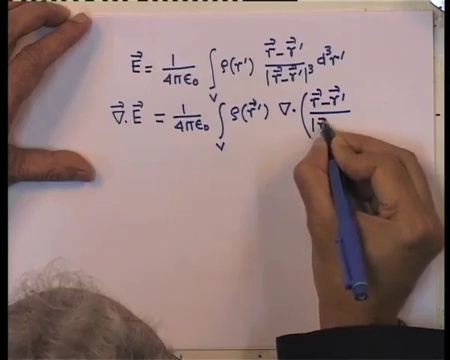 E⃗ = 1/4πε₀ ∫_V ρ(r′) (r⃗ − r⃗′)/|r⃗ − r⃗′|³ d³r′
∇⃗·E⃗ = 1/4πε₀ ∫_V ρ(r⃗′) ∇·( (r⃗ − r⃗′)/|r⃗